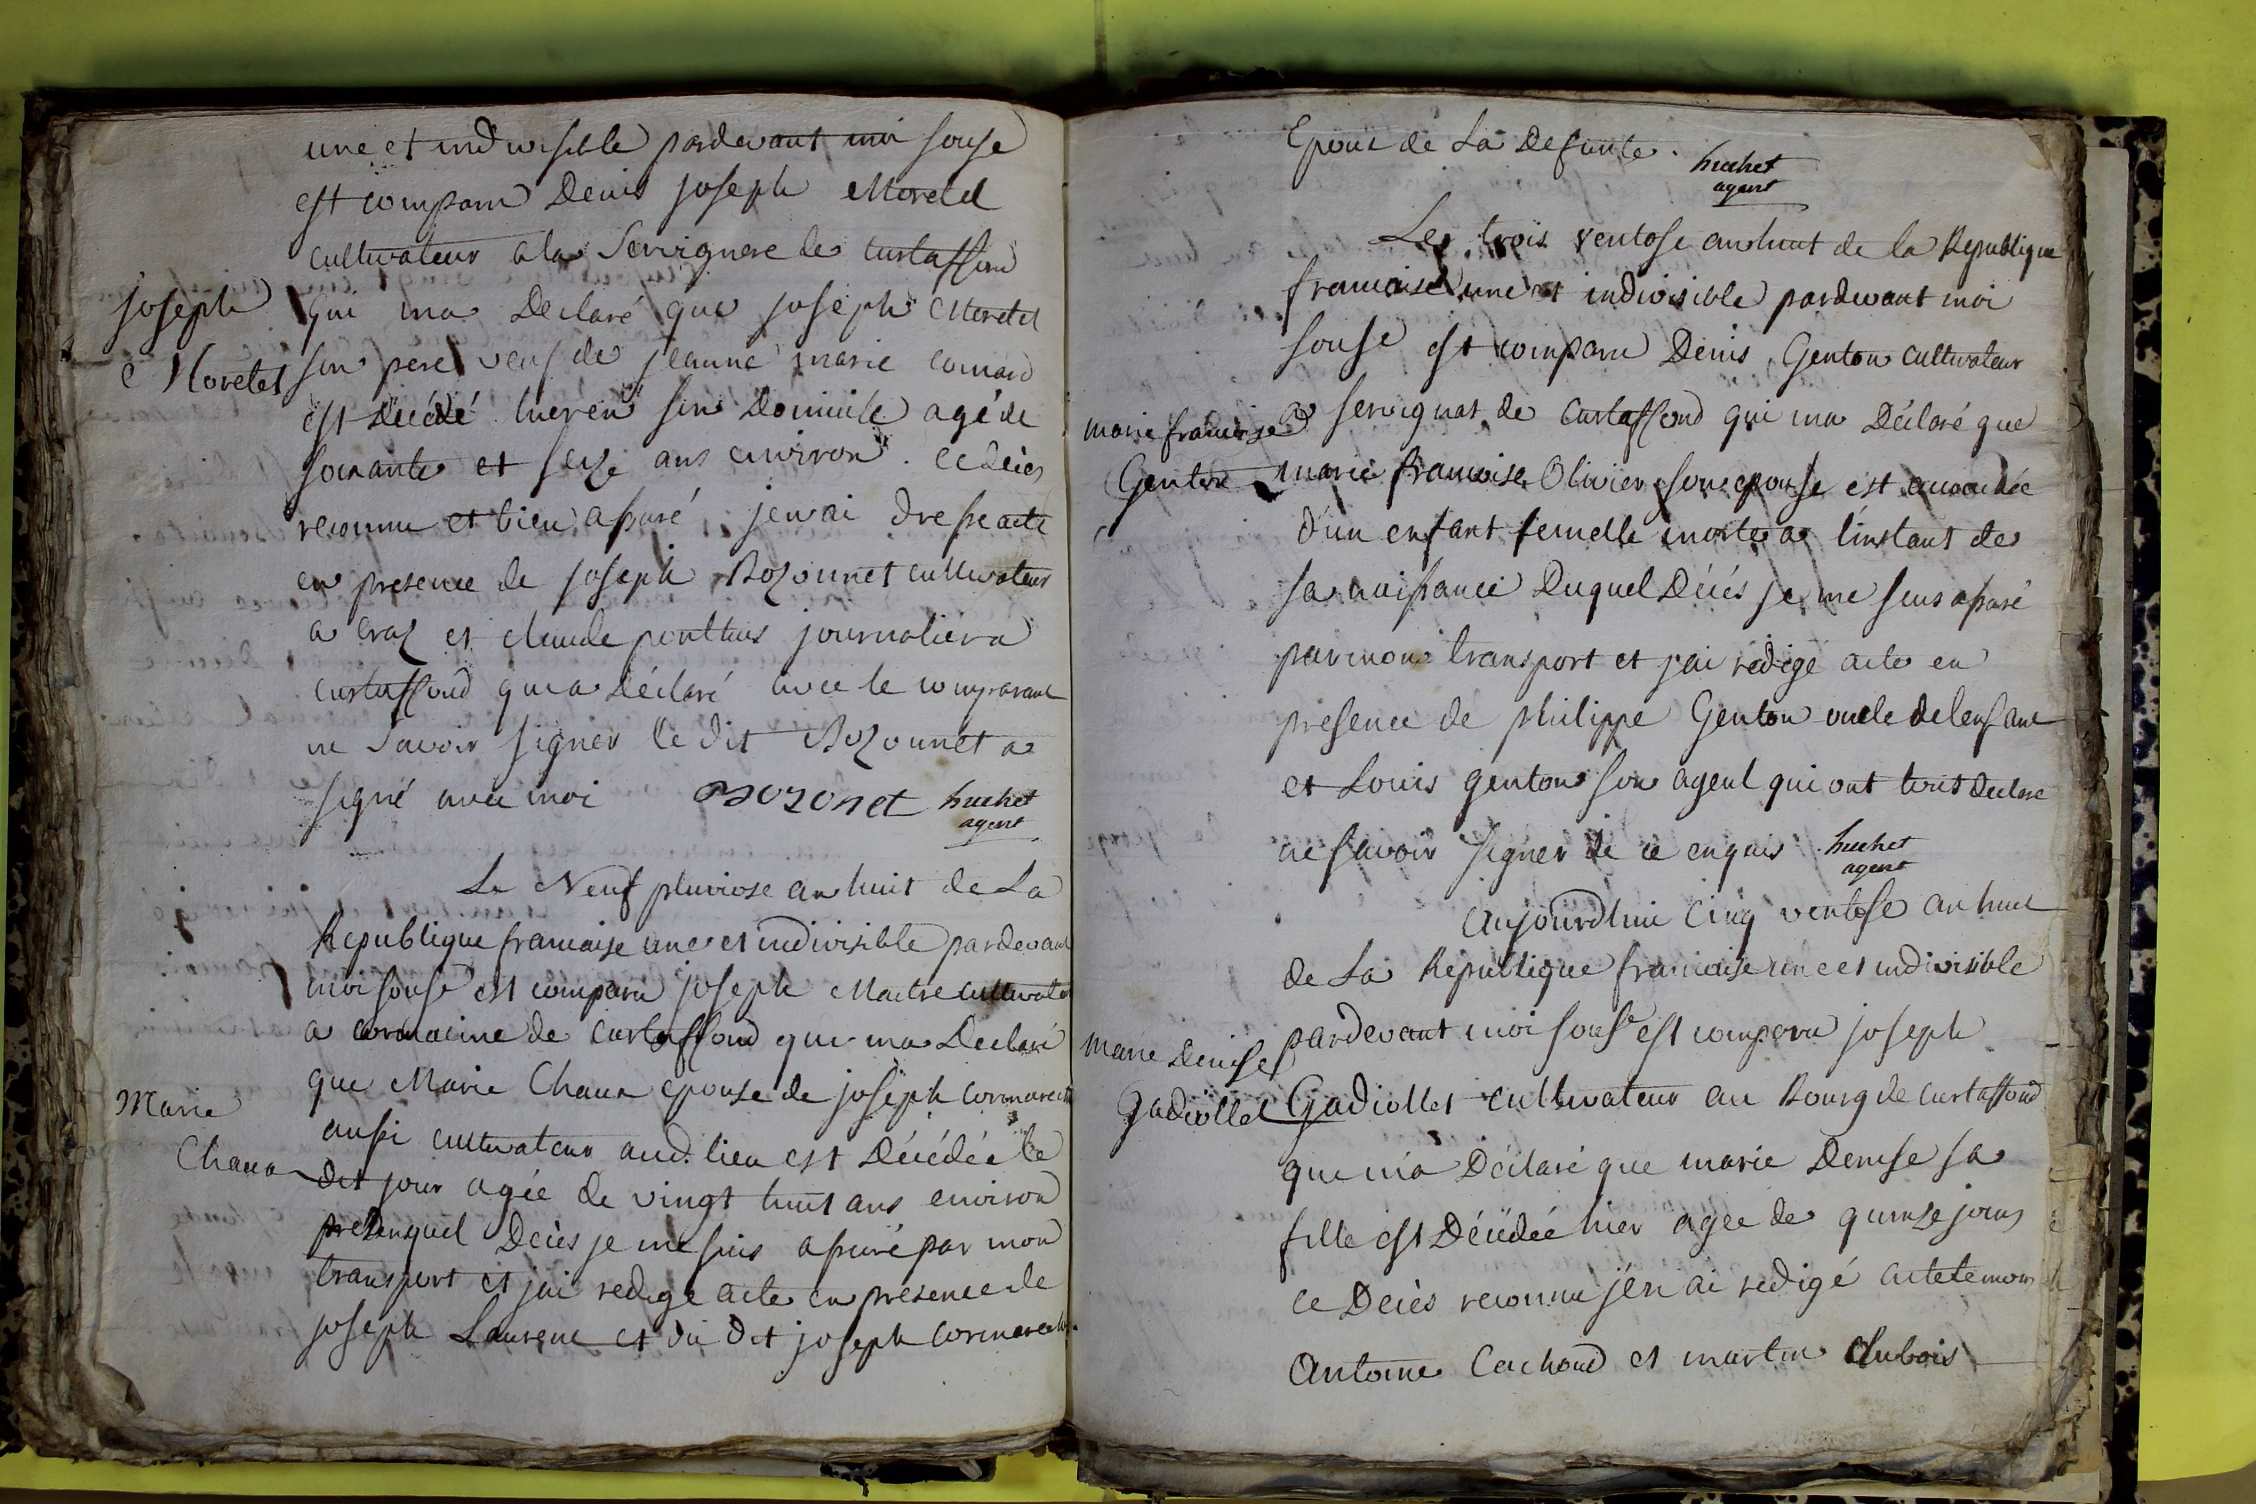 une et indivisible pardevant moi souse
est comparu Denis joseph Moretel
cultivateur a la Servignere de curtaffond
joseph
Moretel
qui ma Declaré que joseph Moretel
son pere veuf de jeanne marie
est Décédé hier en son Domicile agé de
soixante et seize ans environ. ce Décés
reconnu et bien assuré jen ai dressé acte
en presence de joseph Bozonnet cultivateur
a craz et claude ponthus journalier a
curtaffond qui a Déclaré avec le comparant
ne Savoir signer le dit Bozonnet a
signé avec moi Bozonet huchet
agent
Le Neuf pluviose an huit de La
Republique francaise une et indivisible pardevant
moi souse est comparu joseph Maitre cultivateur
a cormacine de curtaffond qui ma Declaré
Marie
Chanu
que Marie Chanu epouse de joseph cormareche
aussi cultivateur aud. lieu est Décédée le
dit jour agée de vingt huit ans environ
Duquel Décès je me suis assuré par mon
transport et jai redigé acte en presence de
joseph Laurent et du dit joseph cormareche
Epoux de La Defunte. huchet
agent
Les trois ventose an huit de la Republique
francaise une et indivisible pardevant moi
souse est comparu Denis Genton cultivateur
marie francoise
Genton
a servignat de curtaffond qui ma Déclaré que
marie francoise Olivier son epouse est accouchée
d'un enfant femelle morte a l'instant de
sa naissance Duquel Décés je me suis assuré
par mon transport et j'ai rédigé acte en
presence de philippe Genton oncle de lenfant
et Louis genton son ayeul qui ont tous declaré
ne savoir signer de ce enquis huchet
agent
Aujourdhui cinq ventose an huit
de La Republique francaise une et indivisible
pardevant moi souse est comparu joseph
marie Denise
Gadiollet
Gadiollet cultivateur au Bourg de curtaffond
qui m'a Déclaré que marie Denise sa
fille est Décédée hier agee de quinze jours
ce Décès reconnu j'en ai redigé acte temoins
Antoine Cachoud et martin dubois